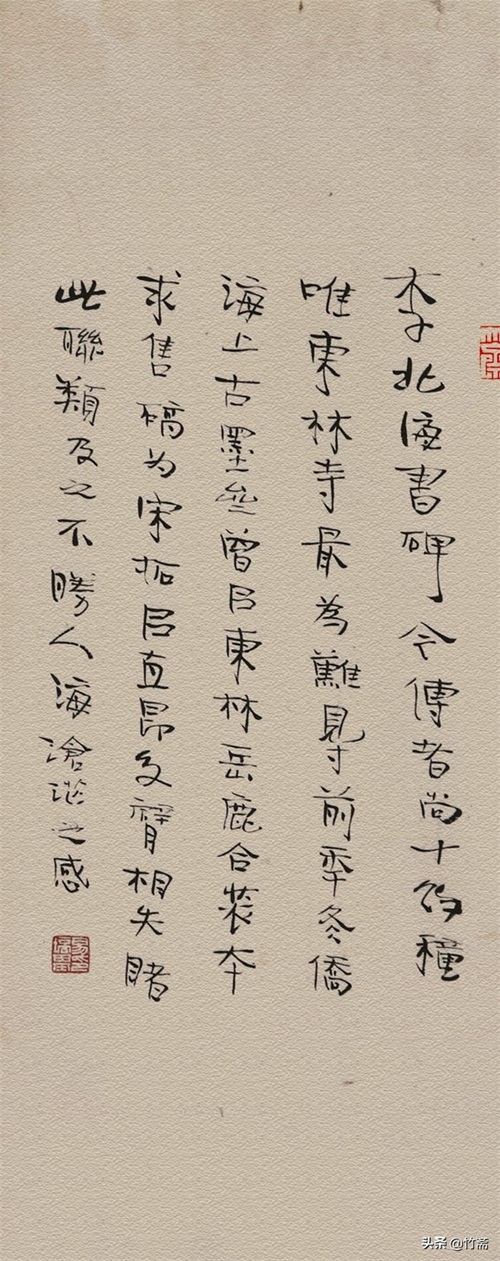 李北海書碑今傳者尚十種
唯東林寺最為難㝵前秊冬僑
海上古墨亝曾㠯東林岳麓合裝本
求售碻為宋拓㠯直昂交臂相失睹
此聯類及之不勝人海滄茫之感
头条 @竹斋